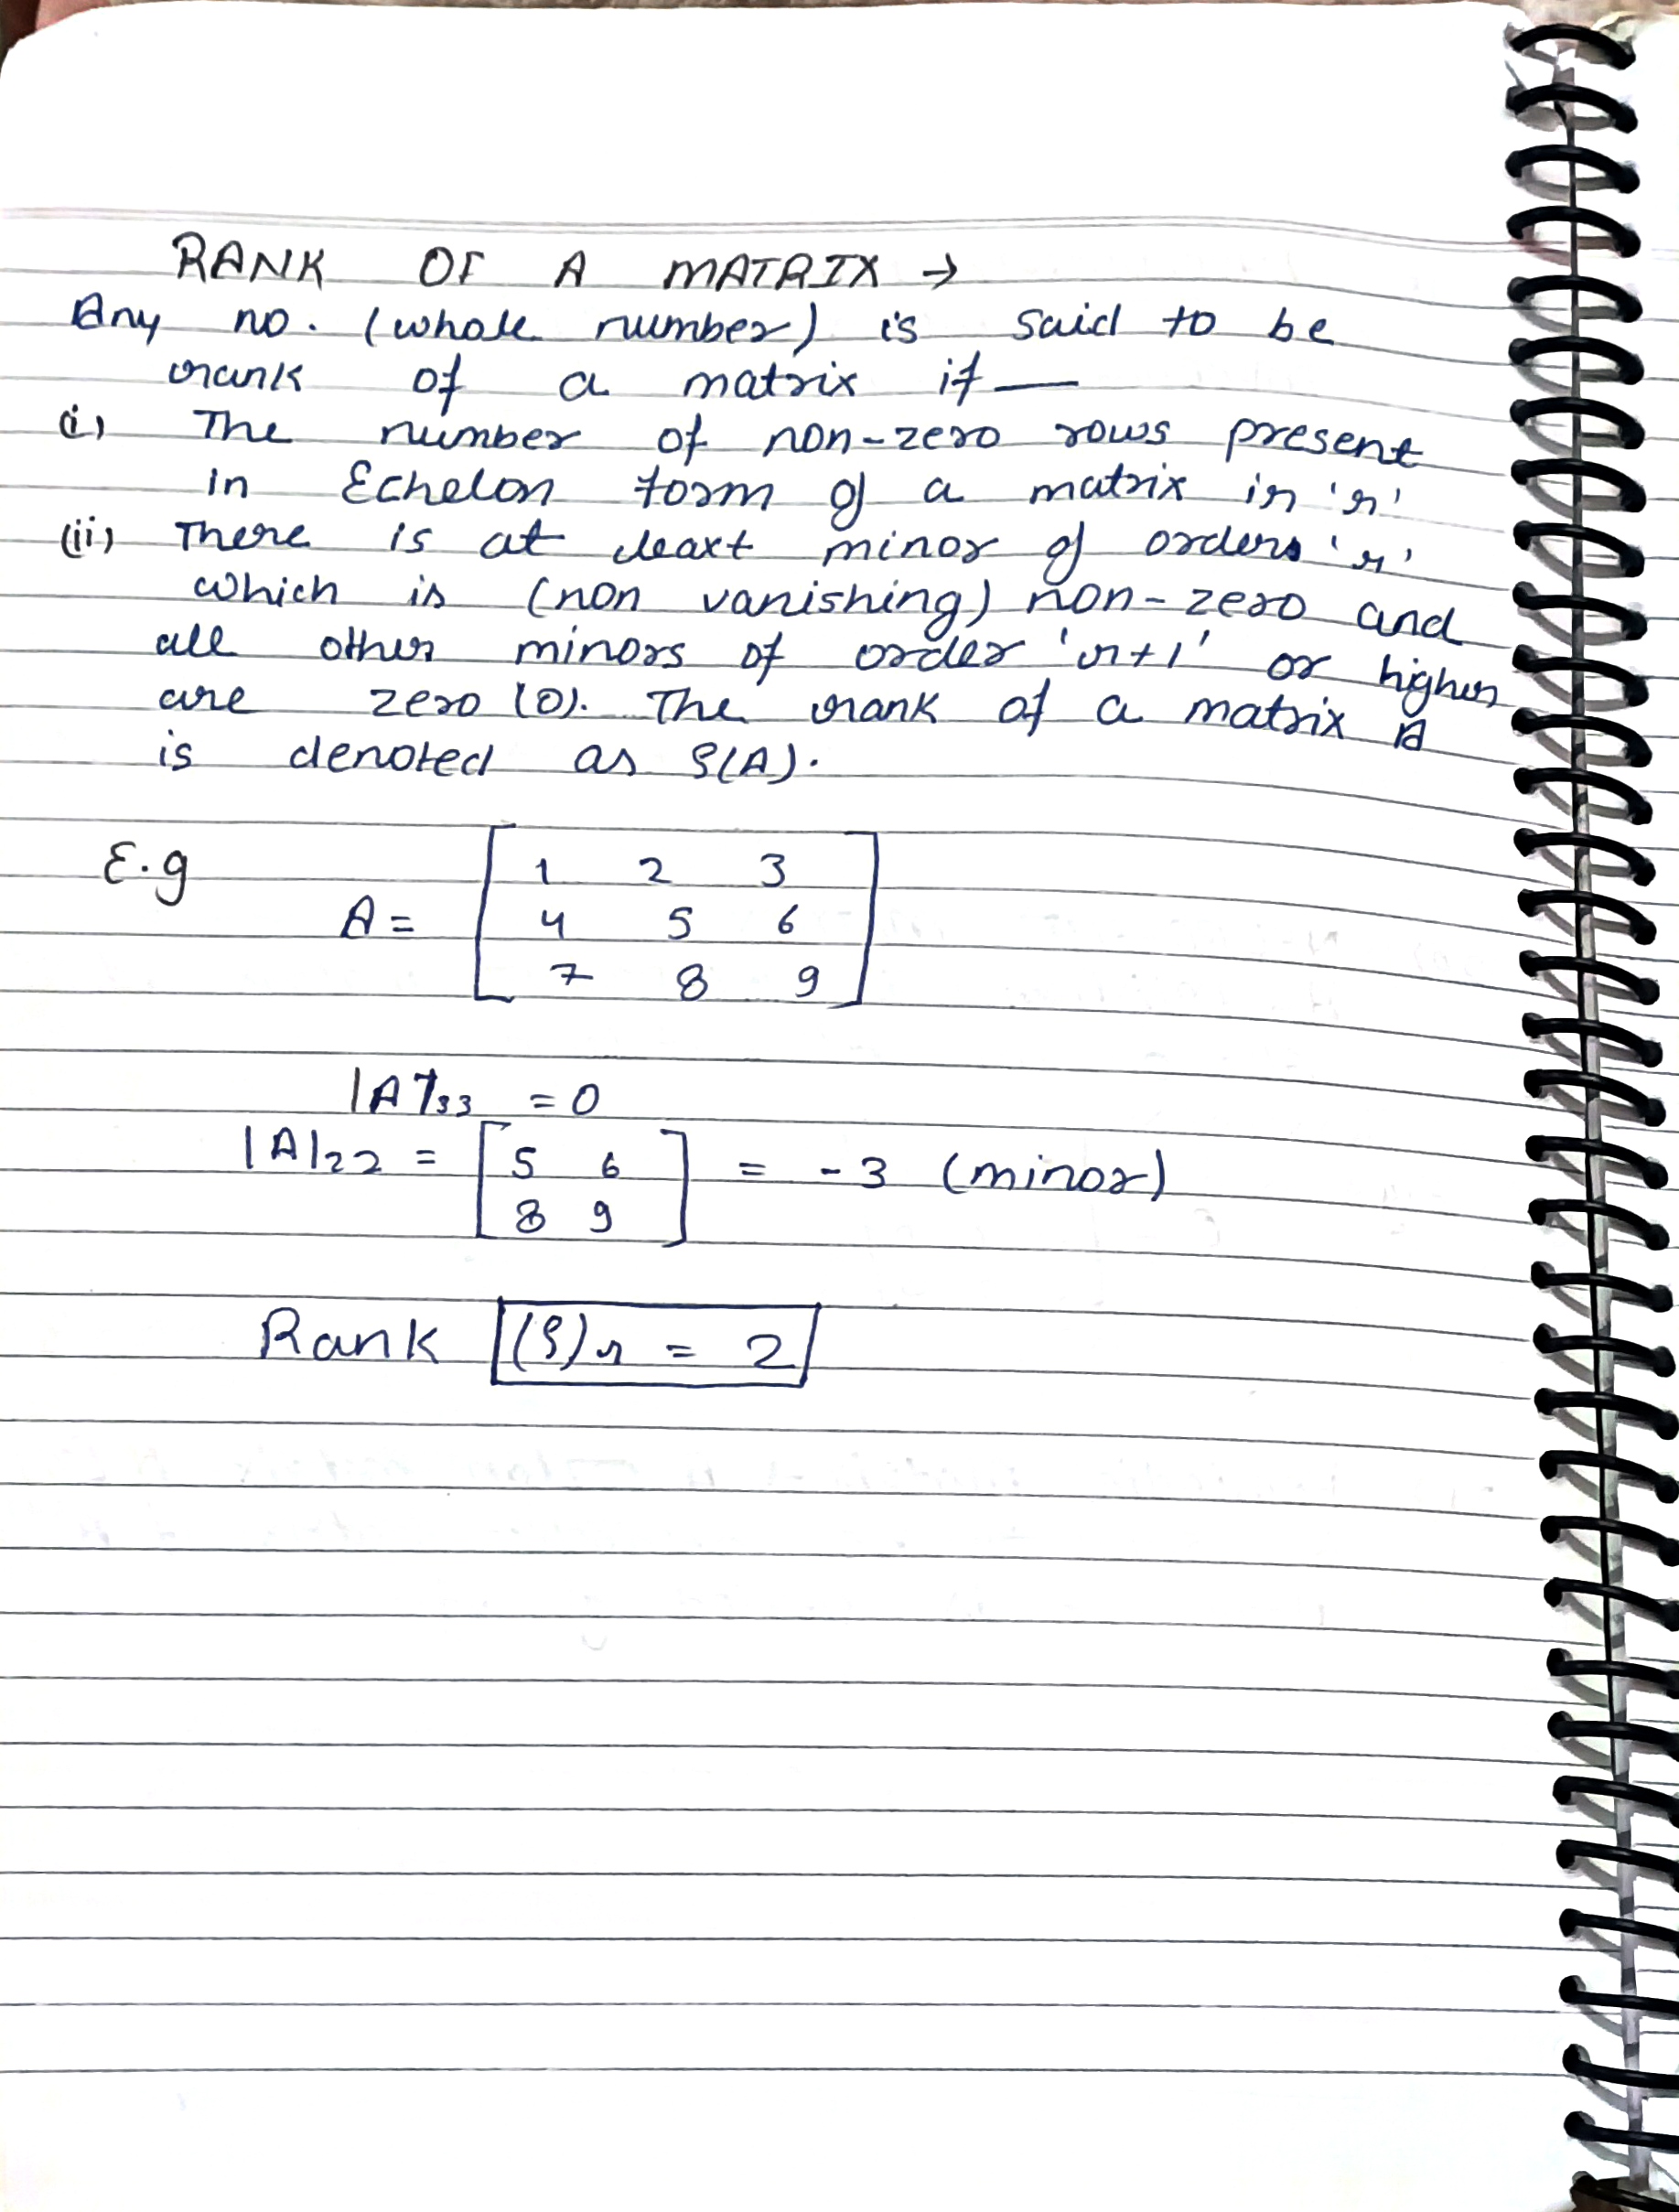 RANK OF A MATRIX →
Any no. (whole number) is said to be
rank of a matrix if —
(i) The number of non-zero rows present
in Echelon form of a matrix is 'r'
(ii) There is at least minor of orders 'r'
which is (non vanishing) non-zero and
all other minors of order 'r+1' or higher
are zero (0). The rank of a matrix A
is denoted as ρ(A).
E.g
A = [ 1 2 3
4 5 6
7 8 9 ]
|A|33 = 0
|A|22 = [ 5 6
8 9 ] = -3 (minor)
Rank (ρ)r = 2